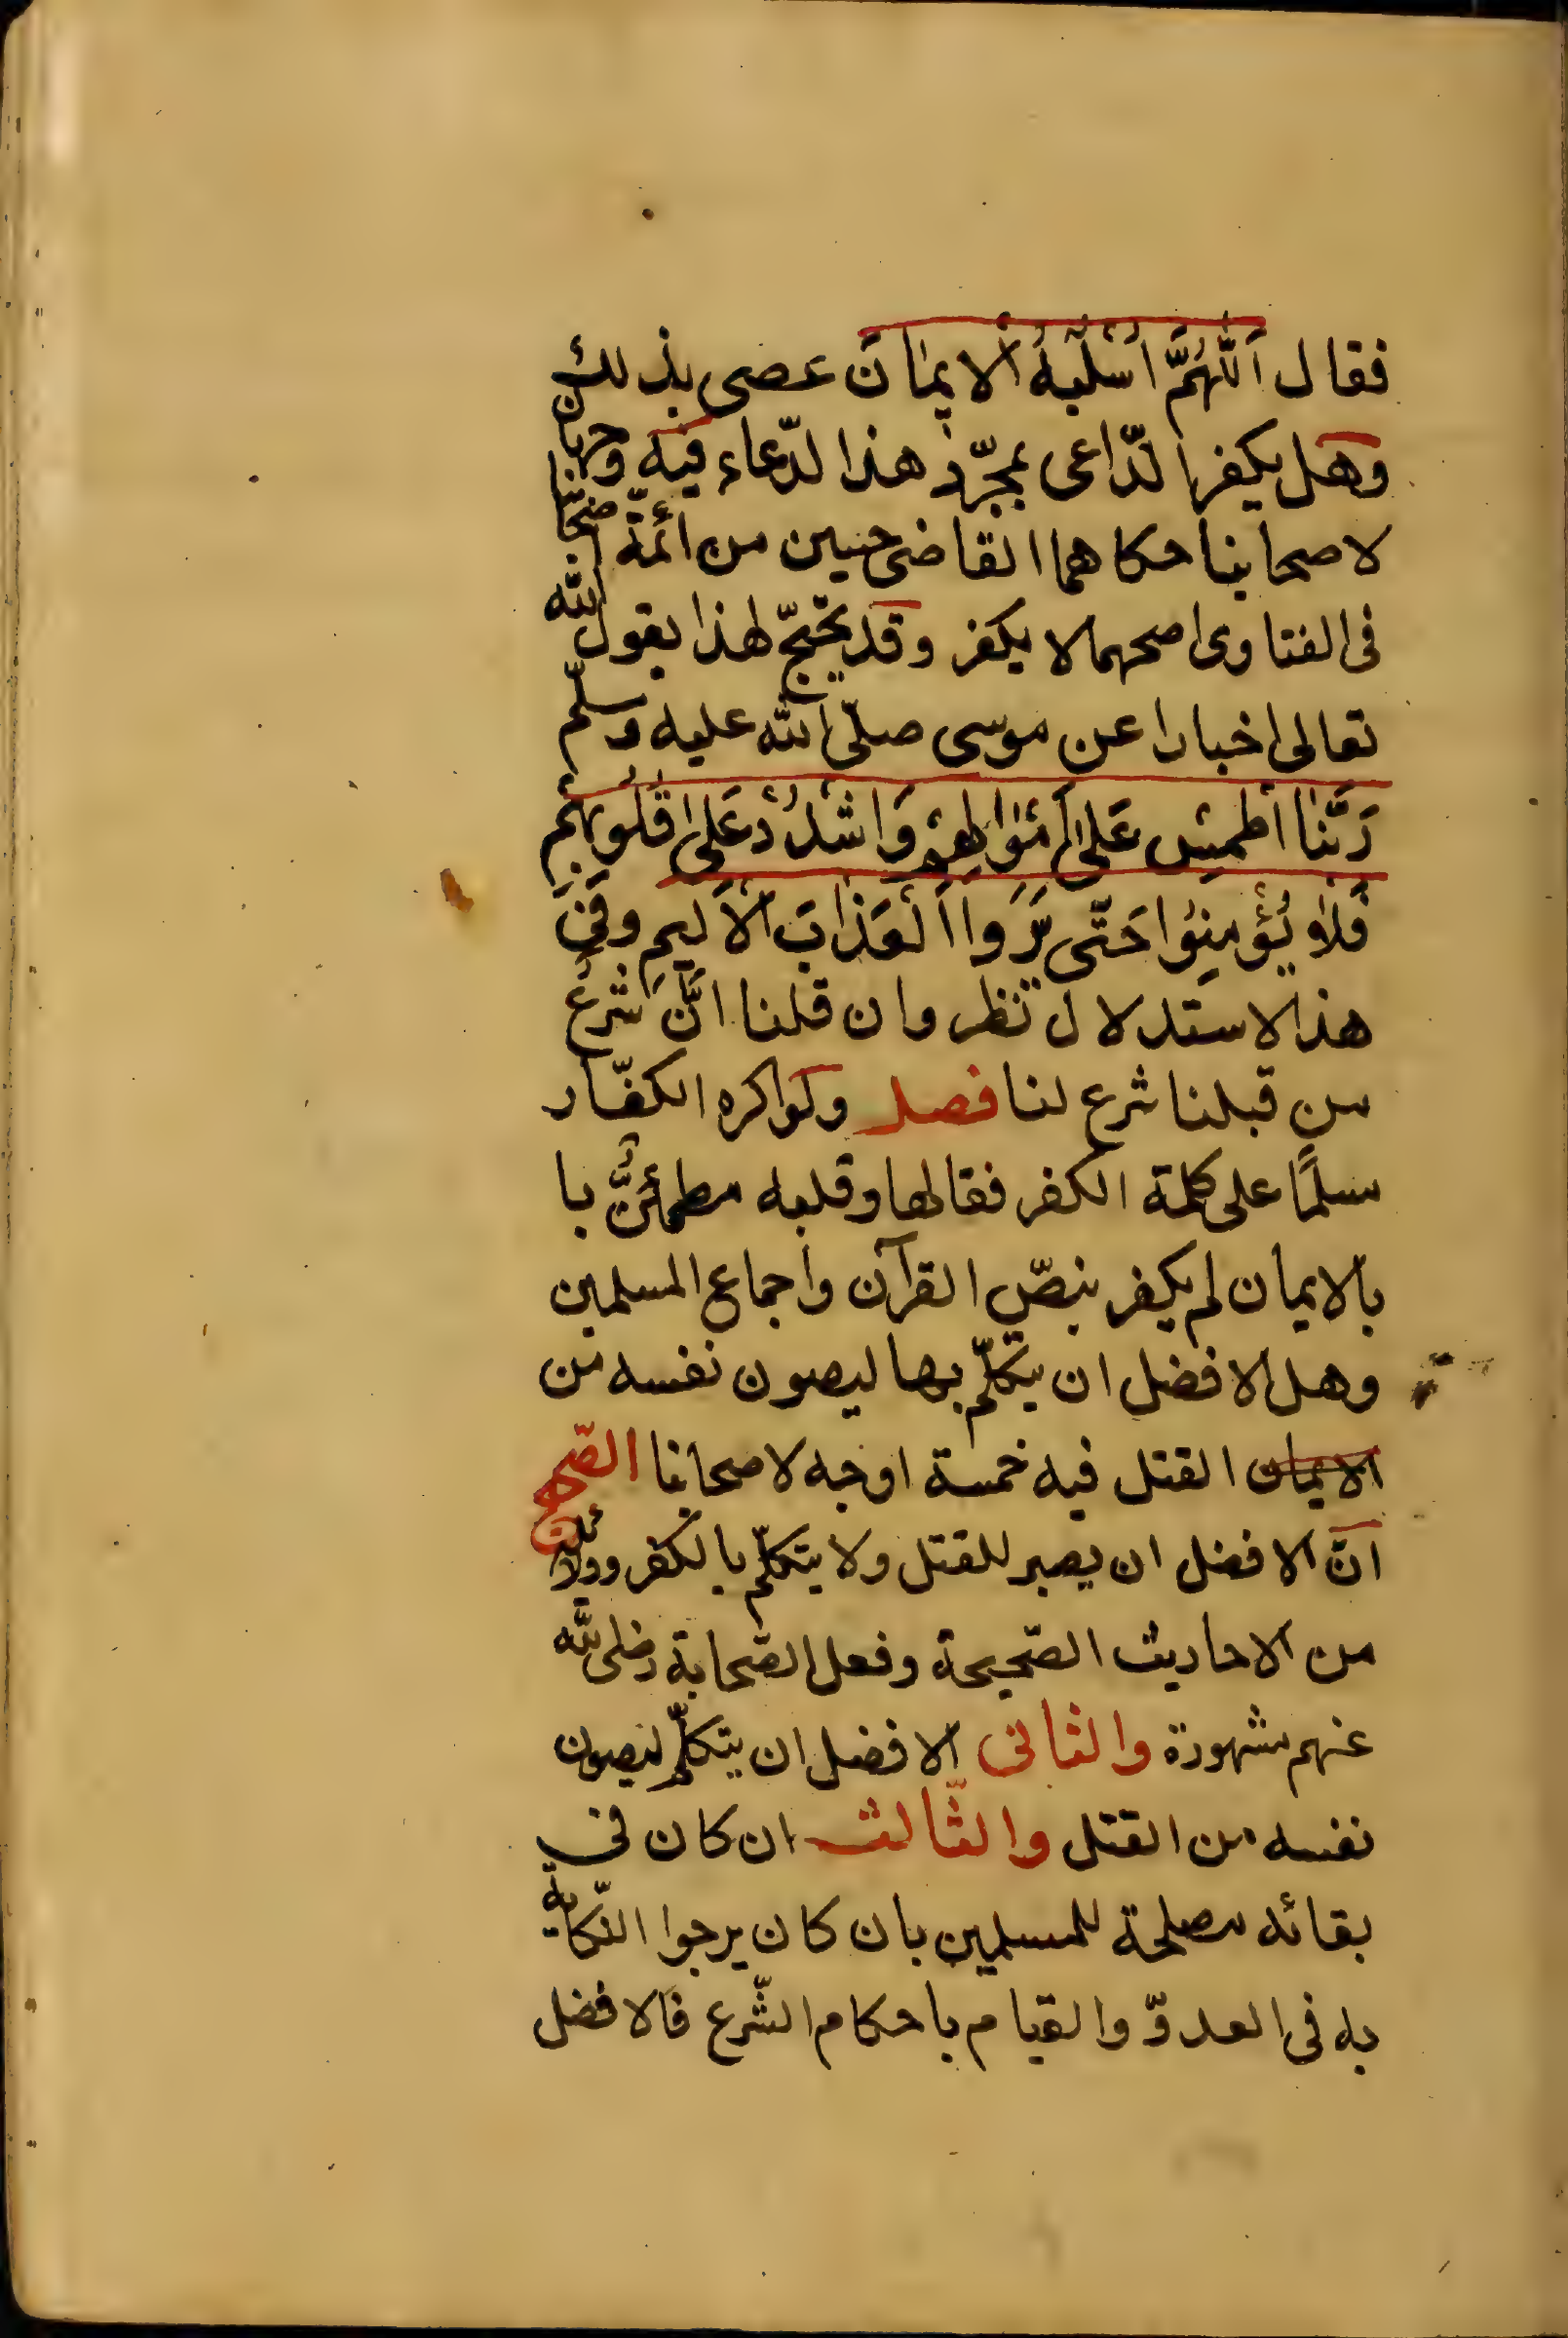 فقال اَللّٰهُمَّ اسْلُبْهُ الْايمَانَ عصى بذلك
وهل يكفر الدّاعى بمجرّد هذا لدّعاء فيه وجهان
لاصحابنا حكاهما القاضى حسين من ائمّة اصحابنا
فى الفتاوى اصحهما لا يكفر وقد يحتجّ لهذا بقول الله
تعالى اخبارا عن موسى صلّى الله عليه وسلّم
رَبَّنَا اطْمِسْ عَلٰى اَمْوَالِهِمْ وَاشْدُدْ عَلٰى قُلُوبِهِمْ
فَلَا يُؤْمِنُوا حَتّٰى يَرَوُا الْعَذَابَ الْاَلِيمِ وَفى
هذا الاستدلال نظر وان قلنا انَّ شَرْعَ
من قبلنا شرع لنا فصل ولو اكره الكفّار
مسلمًا على كلمة الكفر فقالها وقلبه مطمئنٌّ با
بالايمان لم يكفر بنصّ القرآن واجماع المسلمين
وهل الافضل ان يتكلّم بها ليصون نفسه من
الايمان القتل فيه خمسة اوجه لاصحابنا الصّحيح
انّ الافضل ان يصبر للقتل ولا يتكلّم بالكفر ودلائله
من الاحاديث الصّحيحة وفعل الصّحابة رضى الله
عنهم مشهورة والثانى الافضل ان يتكلّم ليصون
نفسه من القتل والثّالث ان كان فى
بقائه مصلحة للمسلمين بان كان يرجوا النّكاية
به فى العدوّ والقيام باحكام الشّرع فالافضل